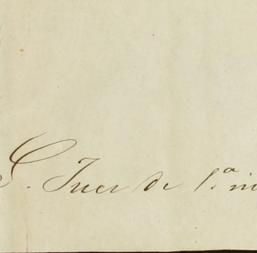 S. Juez de 1.ª in